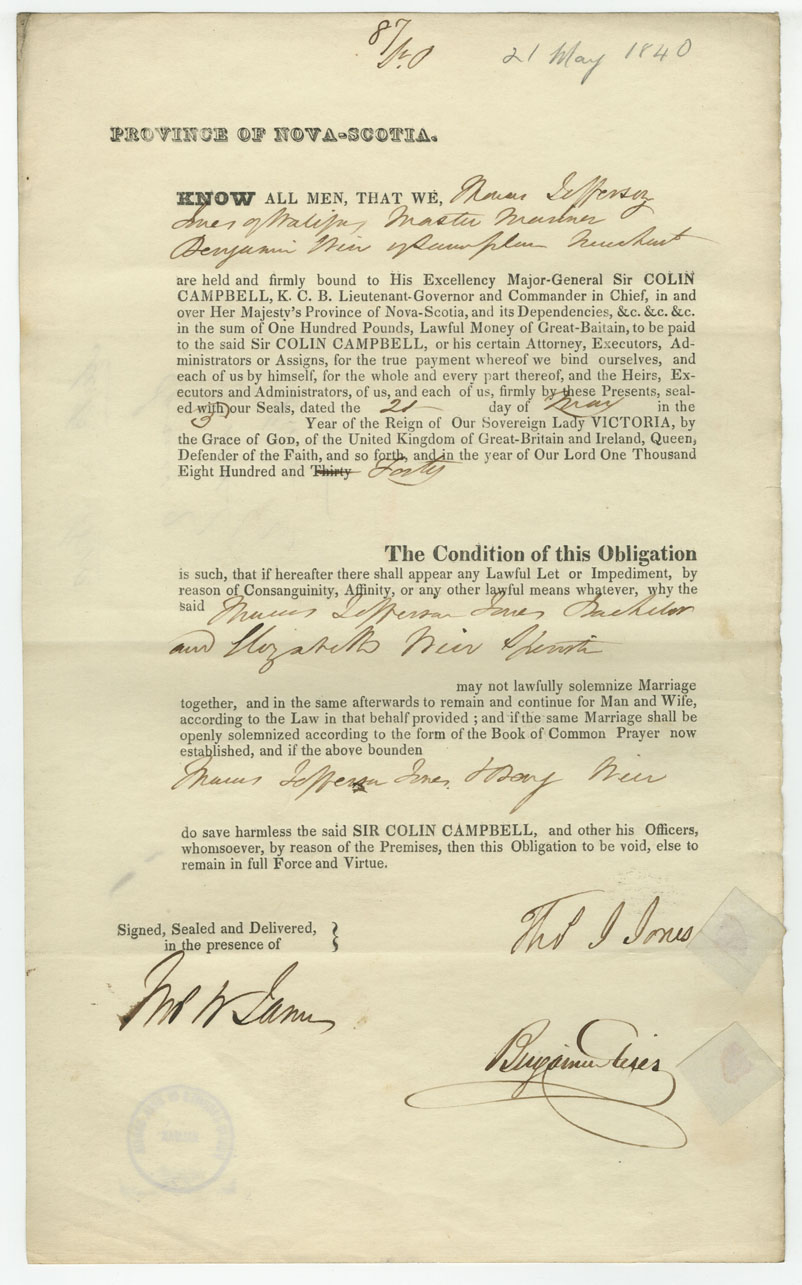 87/40 21 May 1840
PROVINCE OF NOVA-SCOTIA.
KNOW ALL MEN, THAT WE, Thomas Jefferson
Jones of Halifax Master Mariner
Benjamin Wier of same place Merchant
are held and firmly bound to His Excellency Major-General Sir COLIN
CAMPBELL, K. C. B. Lieutenant-Governor and Commander in Chief, in and
over Her Majesty's Province of Nova-Scotia, and its Dependencies, &c. &c. &c.
in the sum of One Hundred Pounds, Lawful Money of Great-Baitain, to be paid
to the said Sir COLIN CAMPBELL, or his certain Attorney, Executors, Ad-
ministrators or Assigns, for the true payment whereof we bind ourselves, and
each of us by himself, for the whole and every part thereof, and the Heirs, Ex-
ecutors and Administrators, of us, and each of us, firmly by these Presents, seal-
ed with our Seals, dated the 21 day of May in the
3 Year of the Reign of Our Sovereign Lady VICTORIA, by
the Grace of GOD, of the United Kingdom of Great-Britain and Ireland, Queen,
Defender of the Faith, and so forth, and in the year of Our Lord One Thousand
Eight Hundred and Thirty Forty
The Condition of this Obligation
is such, that if hereafter there shall appear any Lawful Let or Impediment, by
reason of Consanguinity, Affinity, or any other lawful means whatever, why the
said Thomas Jefferson Jones Bachelor
and Elizabeth Wier Spinster
may not lawfully solemnize Marriage
together, and in the same afterwards to remain and continue for Man and Wife,
according to the Law in that behalf provided ; and if the same Marriage shall be
openly solemnized according to the form of the Book of Common Prayer now
established, and if the above bounden
Thomas Jefferson Jones & Benj Wier
do save harmless the said SIR COLIN CAMPBELL, and other his Officers,
whomsoever, by reason of the Premises, then this Obligation to be void, else to
remain in full Force and Virtue.
Signed, Sealed and Delivered,
in the presence of
Tho J Jones
Benjamin Wier